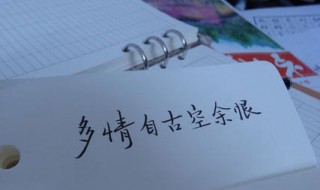 多情自古空余恨